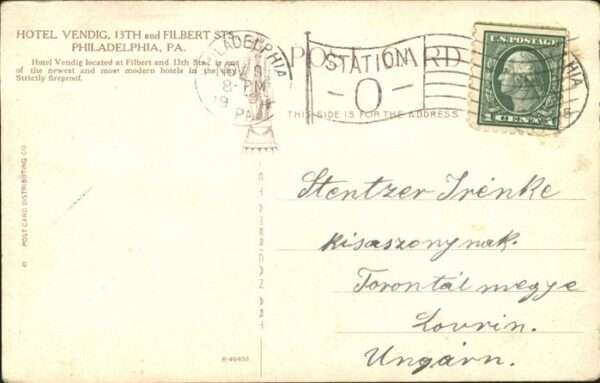 HOTEL VENDIG, 13TH and FILBERT STS.
PHILADELPHIA, PA.
Hotel Vendig located at Filbert and 13th Sts., is one
of the newest and most modern hotels in the city.
Strictly fireproof.
PHILADELPHIA
NOV
8-PM
19
PA.
STATION
O
POST CARD
THIS SIDE IS FOR THE ADDRESS
U.S. POSTAGE
1 CENT 1
POST CARD DISTRIBUTING CO.
R-46403
Stentzer Irénke
kisaszonynak.
Torontál megye
Lovrin.
Ungárn.